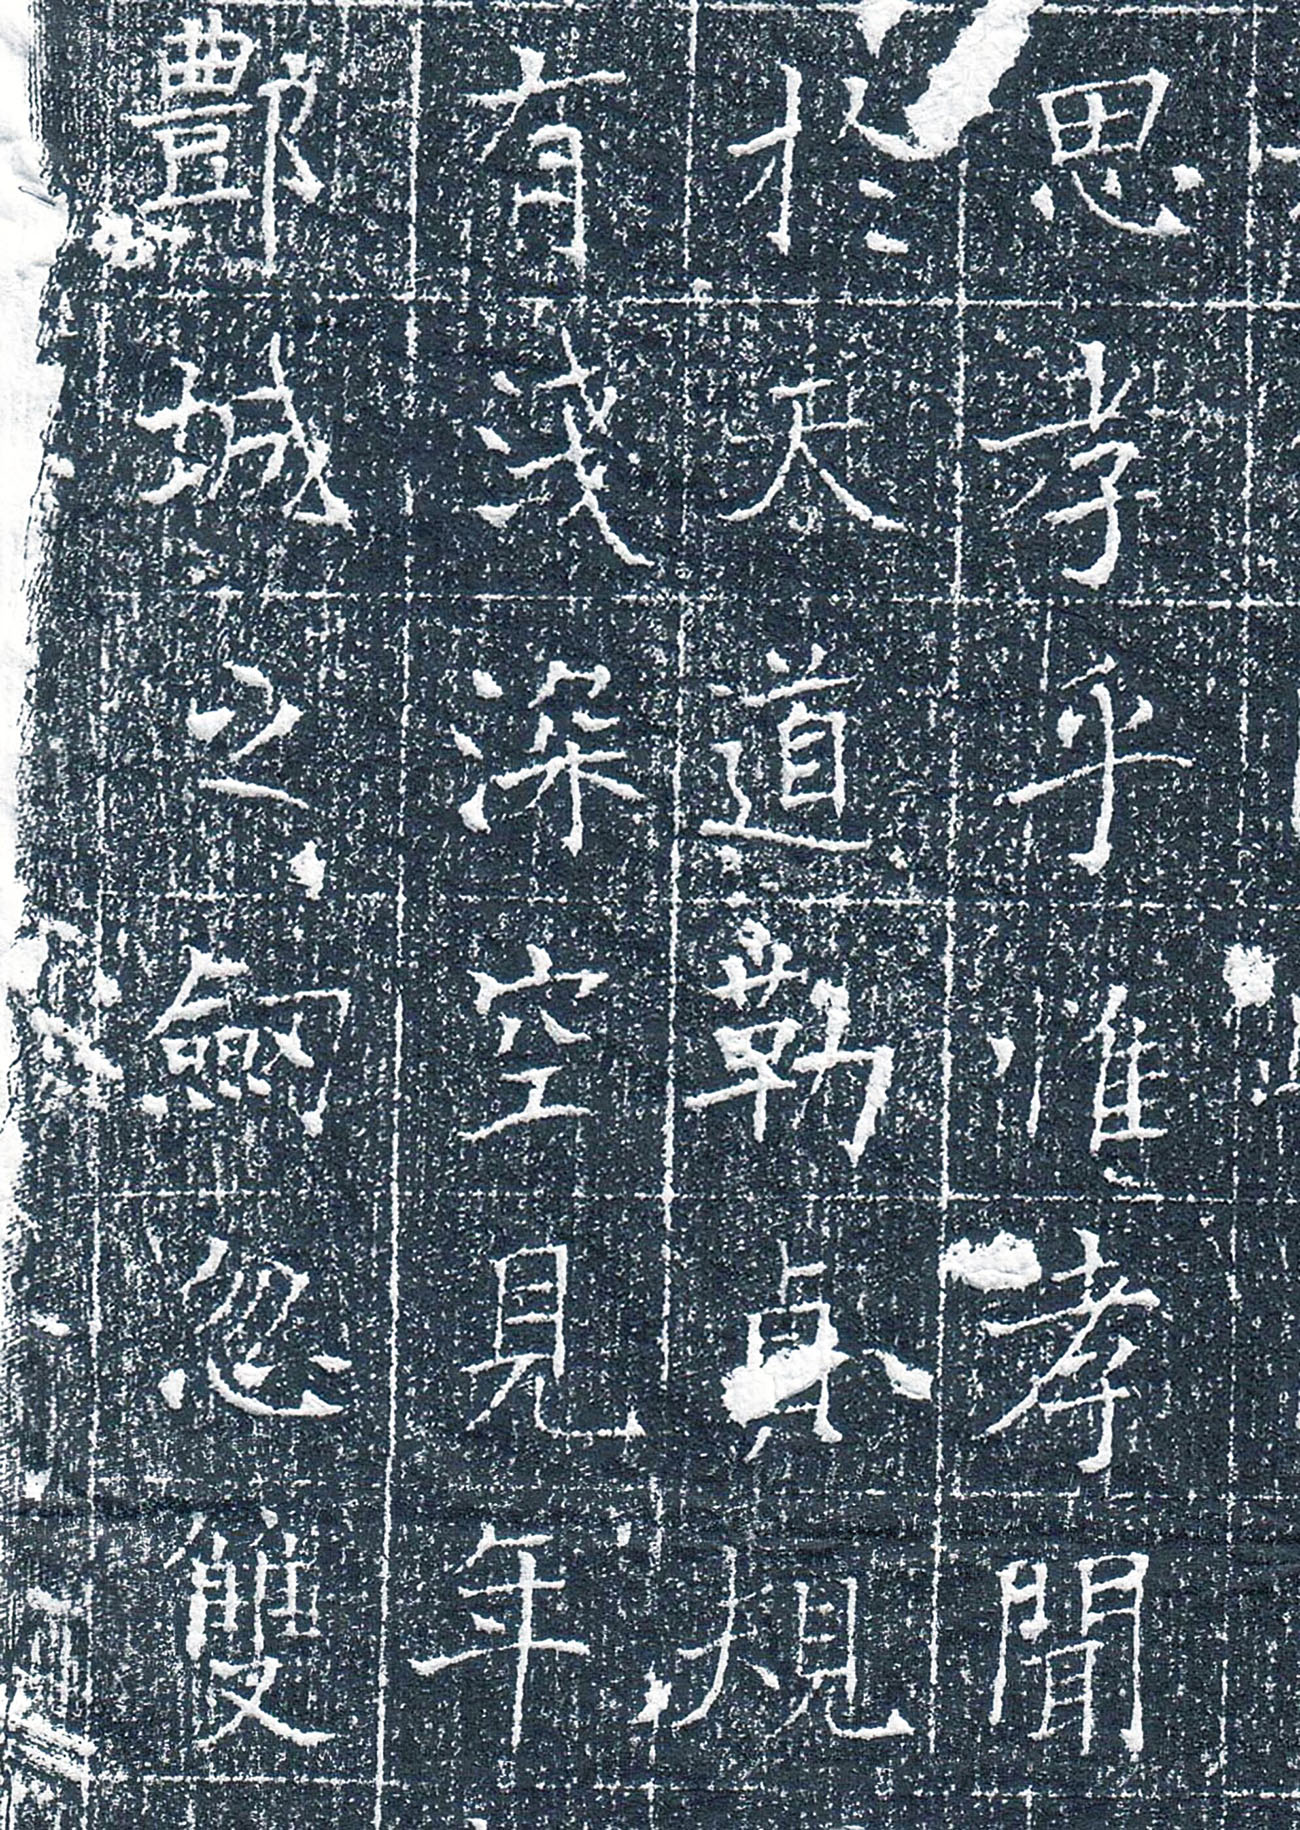 思孝乎惟孝聞
於天道勒貞規
有淺深空見年
酆城之劒忽雙